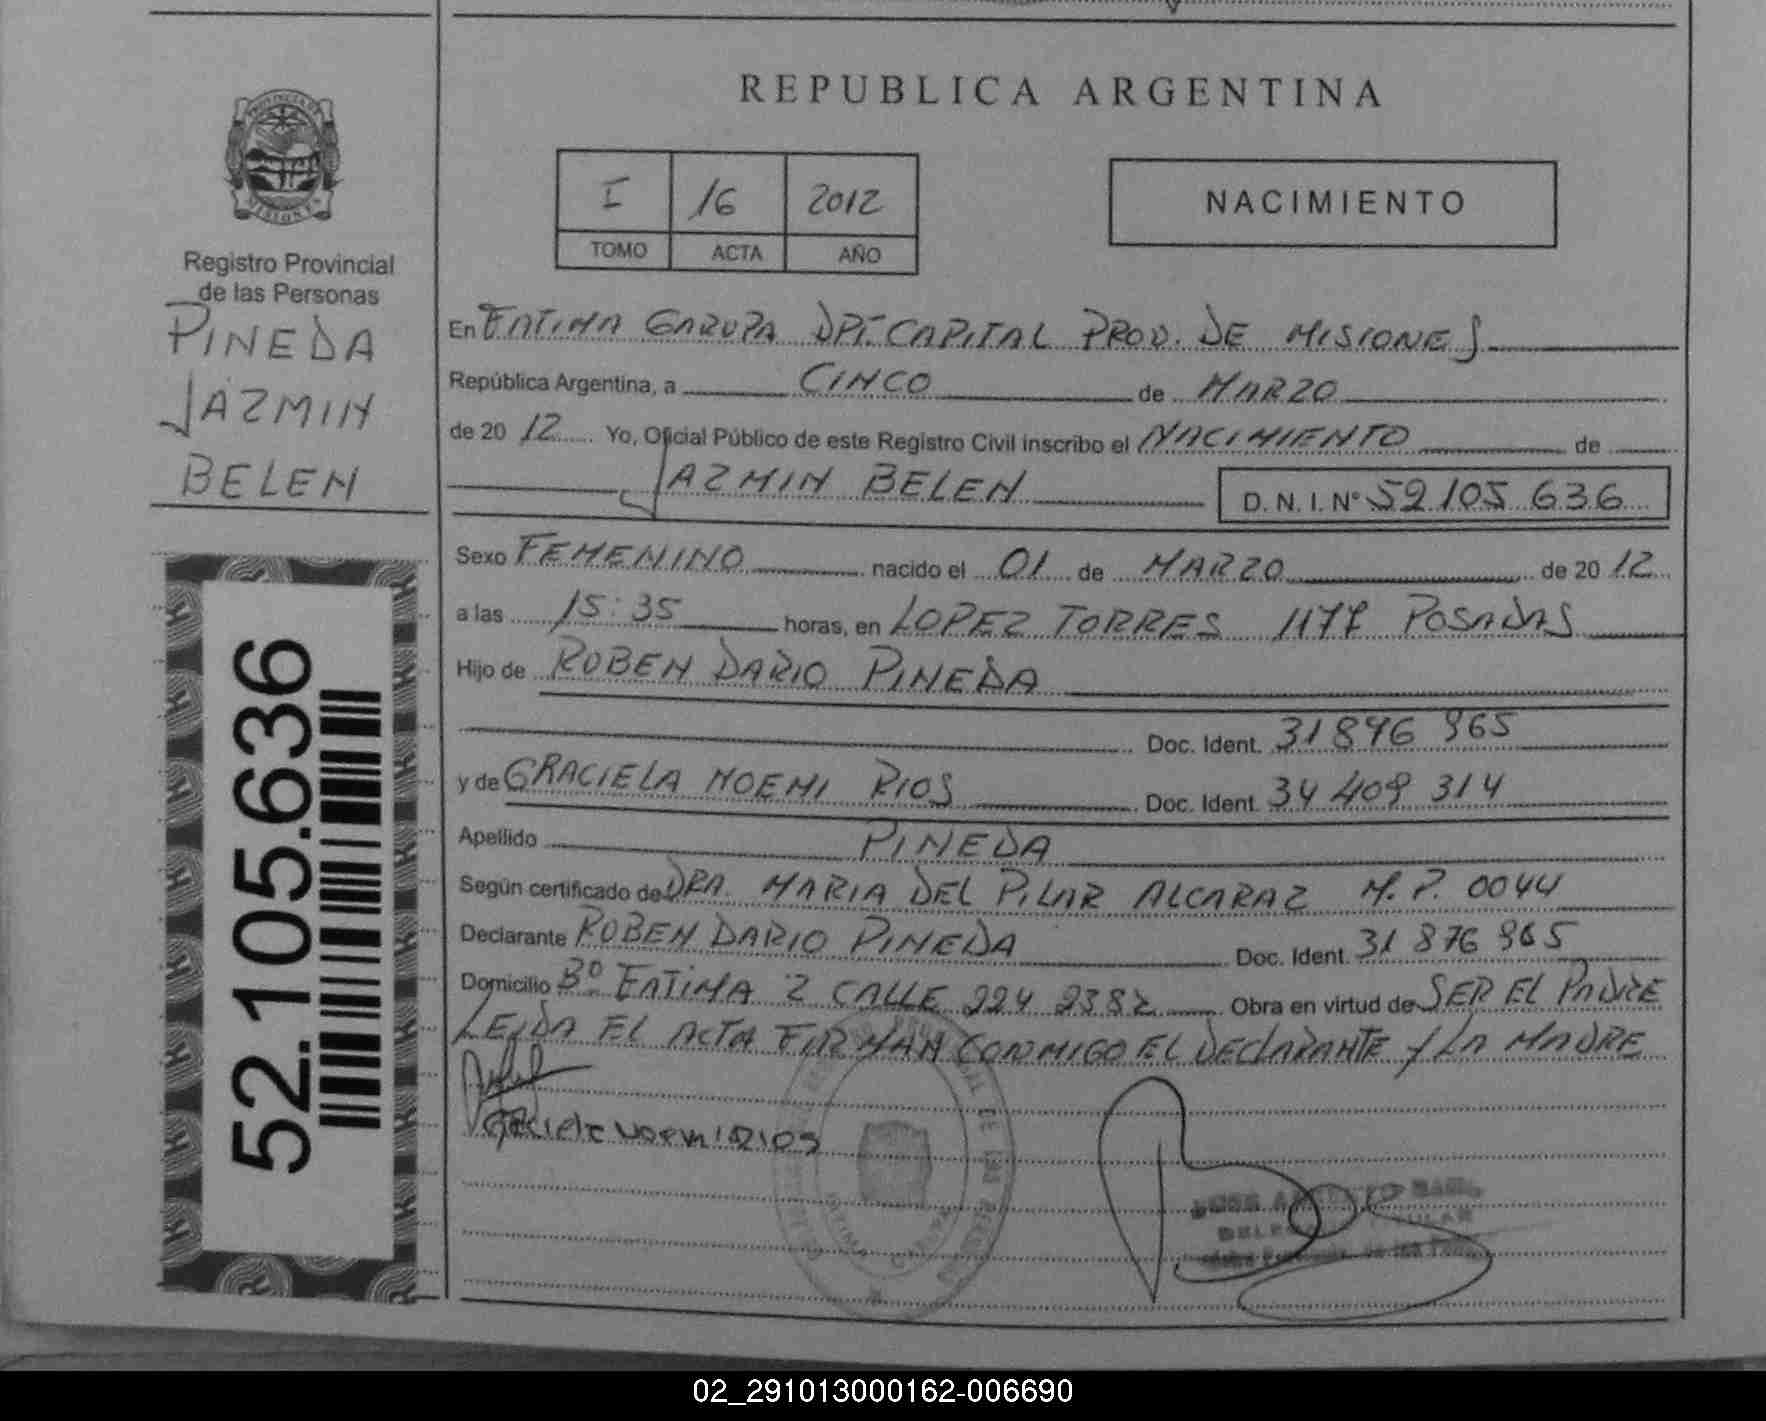 REPUBLICA ARGENTINA
PROVINCIA DE
MISIONES
Registro Provincial
de las Personas
PINEDA
JAZMIN
BELEN
52.105.636
I 16 2012
TOMO ACTA AÑO
NACIMIENTO
En FATIMA GARUPA DPT. CAPITAL PROV. DE MISIONES
República Argentina, a CINCO de MARZO
de 20 12 Yo, Oficial Público de este Registro Civil inscribo el NACIMIENTO de
JAZMIN BELEN D. N. I. N° 52 105 636
Sexo FEMENINO nacido el 01 de MARZO de 20 12
a las 15:35 horas, en LOPEZ TORRES 1177 POSADAS
Hijo de RUBEN DARIO PINEDA
Doc. Ident. 31 876 965
y de GRACIELA NOEMI RIOS Doc. Ident. 34 409 314
Apellido PINEDA
Según certificado de DRA. MARIA DEL PILAR ALCARAZ M.P. 0044
Declarante RUBEN DARIO PINEDA Doc. Ident. 31 876 965
Domicilio B° FATIMA 2 CALLE 224 2382 Obra en virtud de SER EL PADRE
LEIDA EL ACTA FIRMAN CONMIGO EL DECLARANTE Y LA MADRE
Graciela Noemi RIOS
02_291013000162-006690